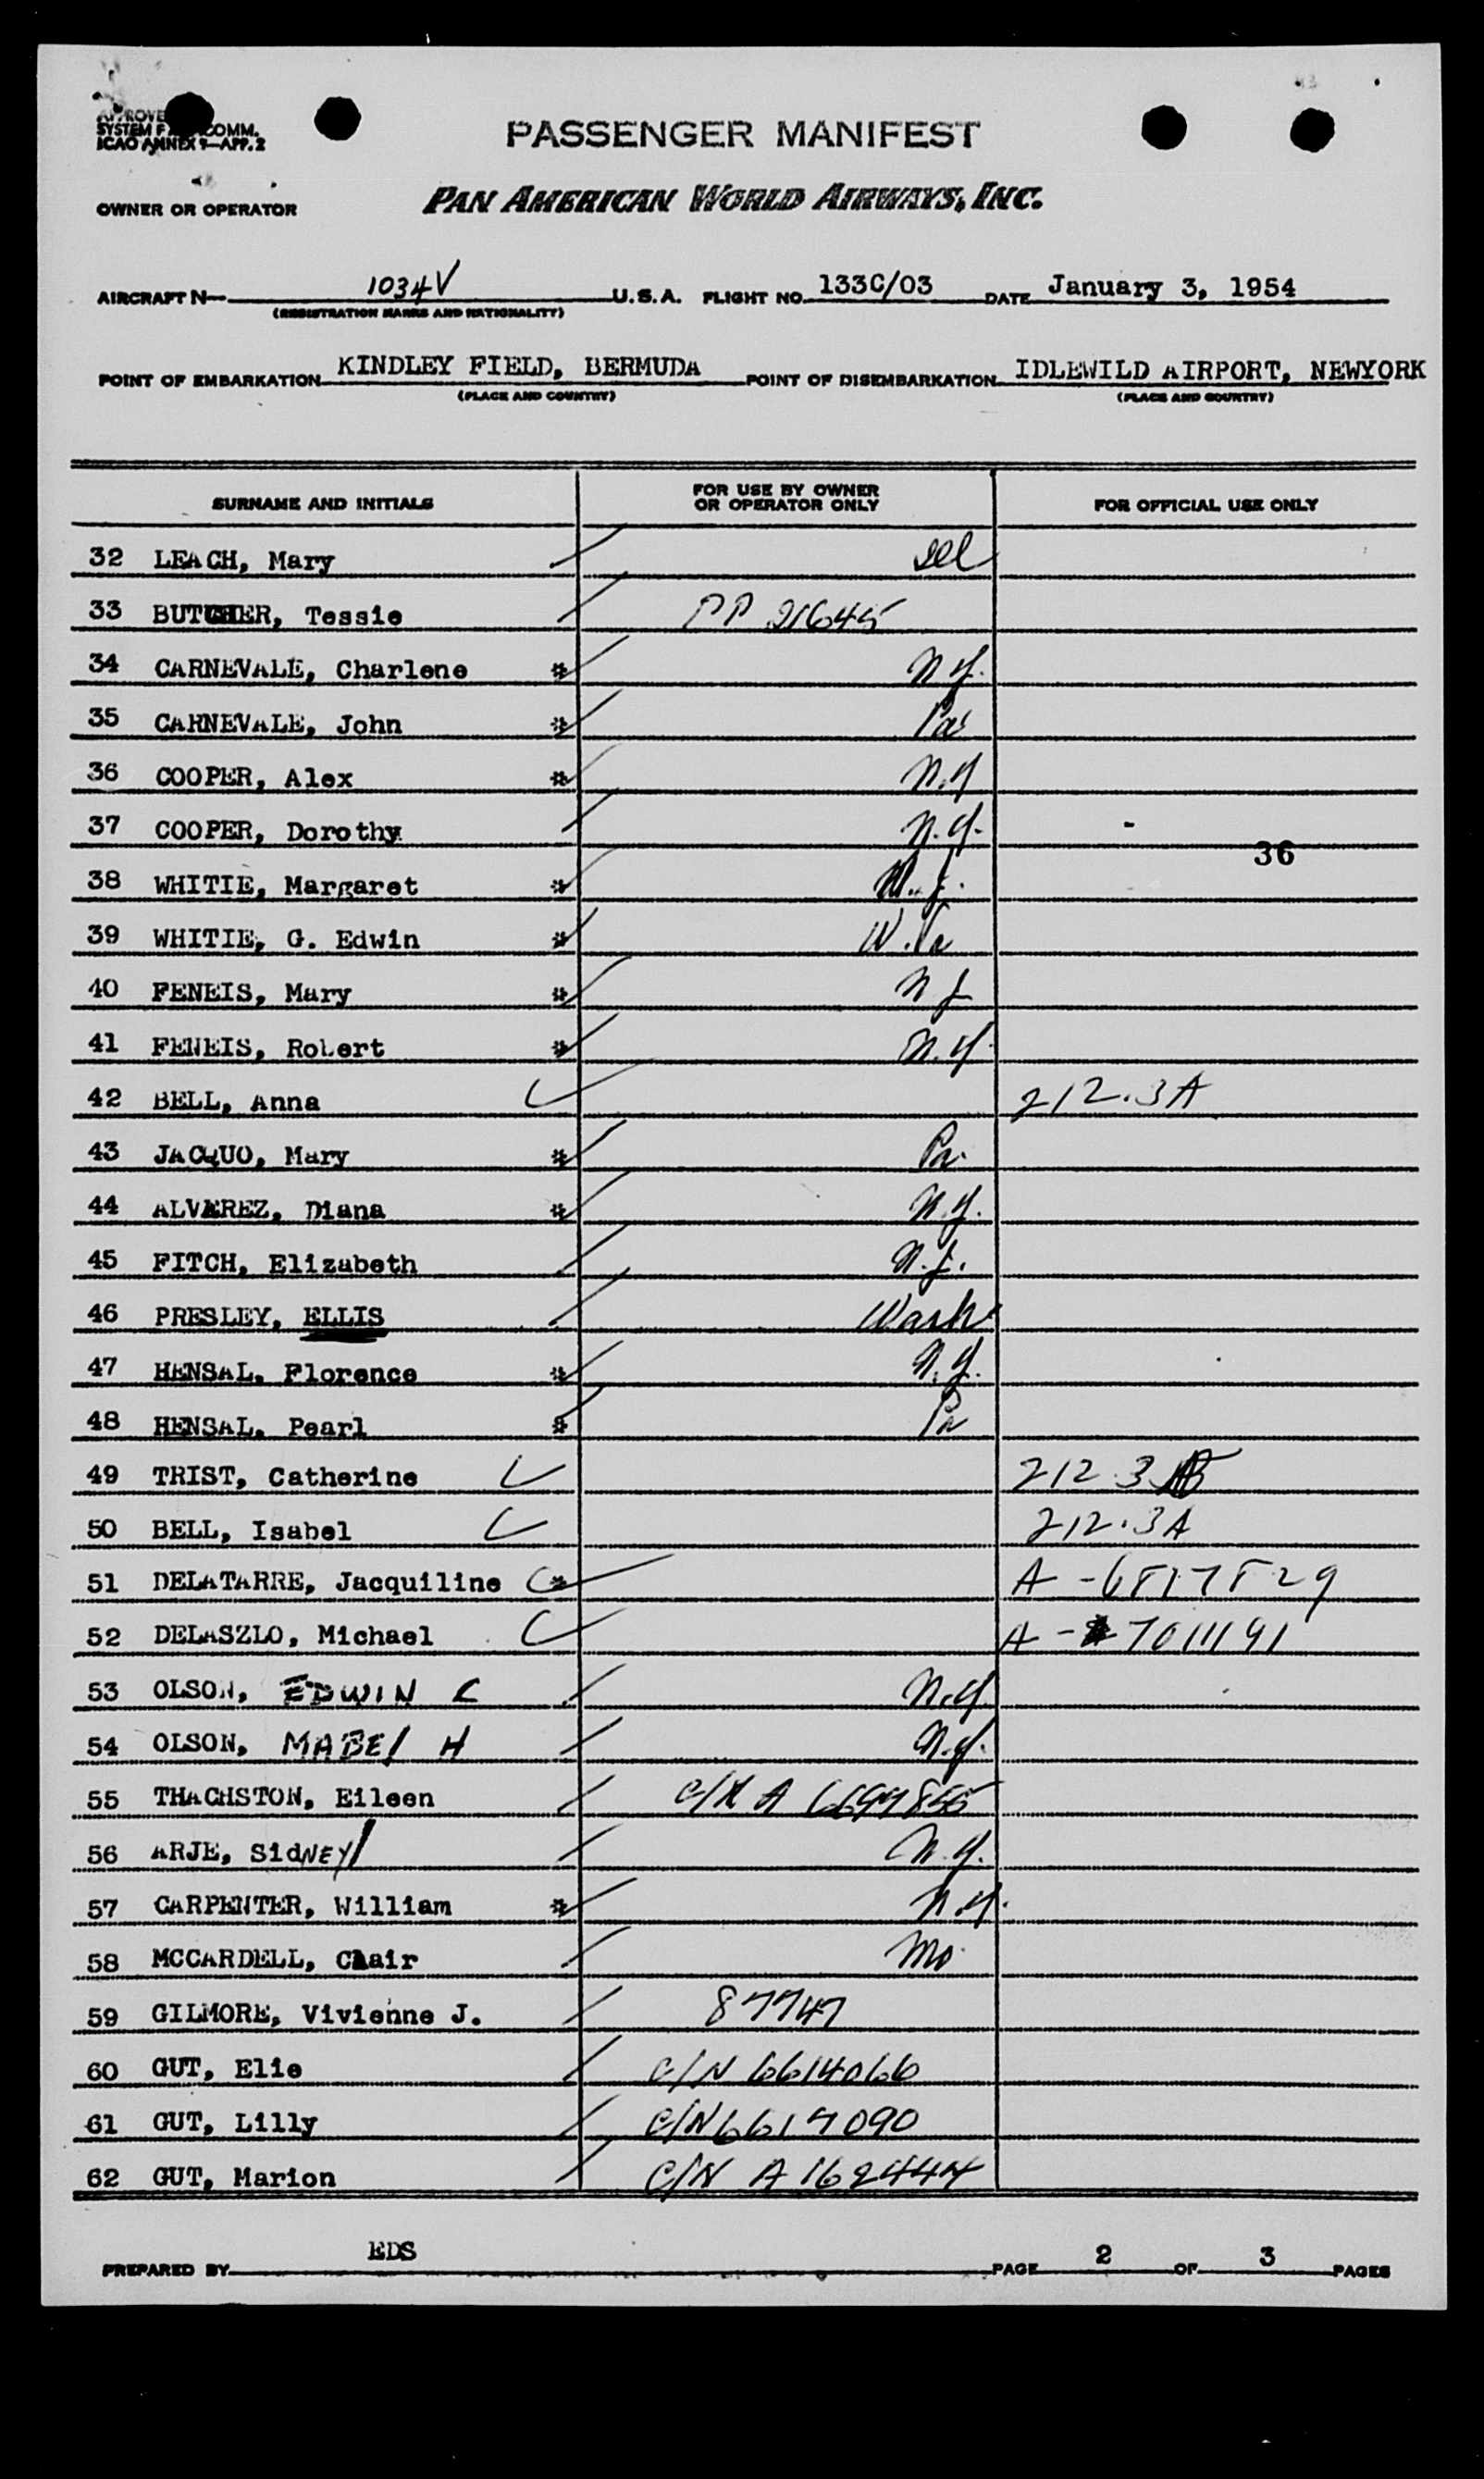 SYSTEM F COMM.
ICAO ANNEX 9—APP. 2
PASSENGER MANIFEST
OWNER OR OPERATOR PAN AMERICAN WORLD AIRWAYS, INC.
AIRCRAFT N— 1034V U.S.A. FLIGHT NO. 133C/03 DATE January 3, 1954
(REGISTRATION MARKS AND NATIONALITY)
POINT OF EMBARKATION KINDLEY FIELD, BERMUDA POINT OF DISEMBARKATION IDLEWILD AIRPORT, NEWYORK
(PLACE AND COUNTRY) (PLACE AND COUNTRY)
SURNAME AND INITIALS FOR USE BY OWNER OR OPERATOR ONLY FOR OFFICIAL USE ONLY
32 LEACH, Mary
33 BUTCHER, Tessie PP 21645
34 CARNEVALE, Charlene * N.Y.
35 CARNEVALE, John * Pa
36 COOPER, Alex * N.Y
37 COOPER, Dorothy N.Y.
36
38 WHITIE, Margaret * N.J.
39 WHITIE, G. Edwin * W.Va
40 FENEIS, Mary * N J
41 FENEIS, Robert * N.Y.
42 BELL, Anna 212.3A
43 JACQUO, Mary * Pa.
44 ALVEREZ, Diana * N.Y.
45 FITCH, Elizabeth N.J.
46 PRESLEY, ELLIS Wash
47 HENSAL, Florence * N.Y.
48 HENSAL, Pearl * Pa
49 TRIST, Catherine 212.3
50 BELL, Isabel 212.3A
51 DELATARRE, Jacquiline * A-6817829
52 DELASZLO, Michael A-7011191
53 OLSON, EDWIN C N.Y.
54 OLSON, MABEl H N.Y.
55 THACHSTON, Eileen A 6699855
56 ARJE, SidNEY N.Y.
57 CARPENTER, William * N.Y.
58 MCCARDELL, Clair Mo.
59 GILMORE, Vivienne J. 87747
60 GUT, Elie C/N 6614066
61 GUT, Lilly C/N 6617090
62 GUT, Marion C/N A162444
PREPARED BY EDS PAGE 2 OF 3 PAGES